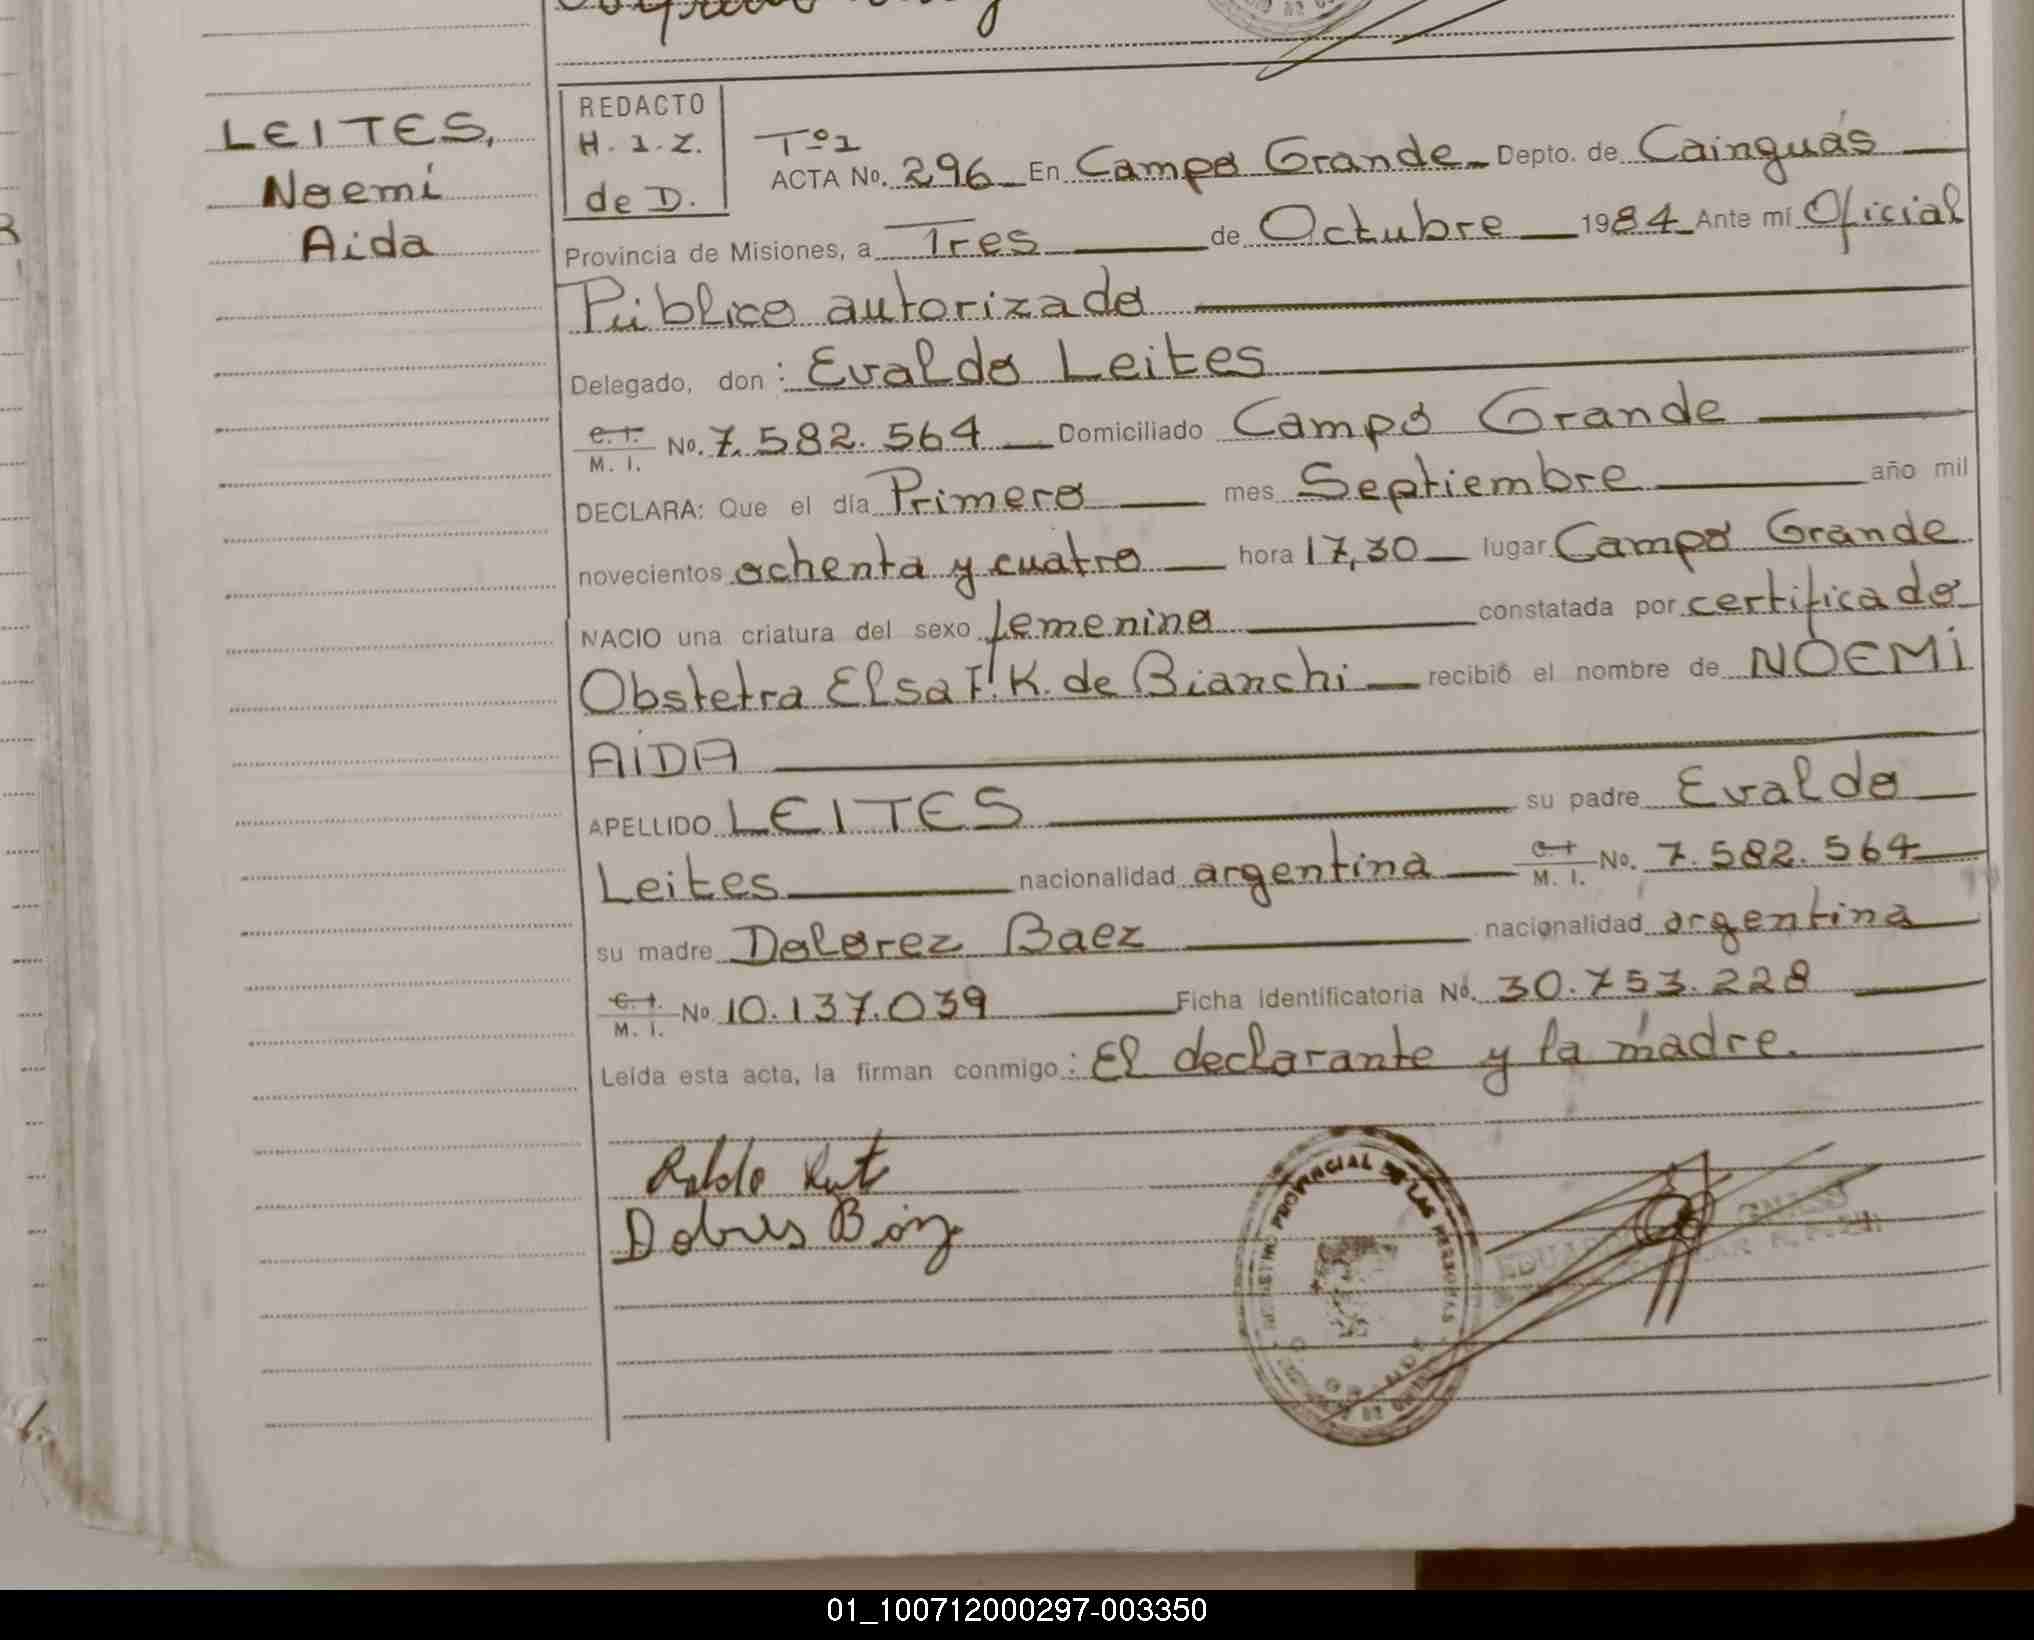 LEITES,
Noemí
Aida
REDACTO
H. I. Z.
de D.
Tº1
ACTA No. 296 En Campo Grande Depto. de Cainguás
Provincia de Misiones, a Tres de Octubre 1984 Ante mí Oficial
Público autorizado
Delegado, don: Evaldo Leites
C. I. M. I. No. 7.582.564 Domiciliado Campo Grande
DECLARA: Que el día Primero mes Septiembre año mil
novecientos ochenta y cuatro hora 17,30 lugar Campo Grande
NACIO una criatura del sexo femenino constatada por certificado
Obstetra Elsa F. K. de Bianchi recibió el nombre de NOEMÍ
AIDA
APELLIDO LEITES su padre Evaldo
Leites nacionalidad argentina C. I. M. I. No. 7.582.564
su madre Dolorez Baez nacionalidad argentina
C. I. M. I. No 10.137.039 Ficha identificatoria No. 30.753.228
Leída esta acta, la firman conmigo: El declarante y la madre.
PROVINCIAL DE LAS PERSONAS
01_100712000297-003350